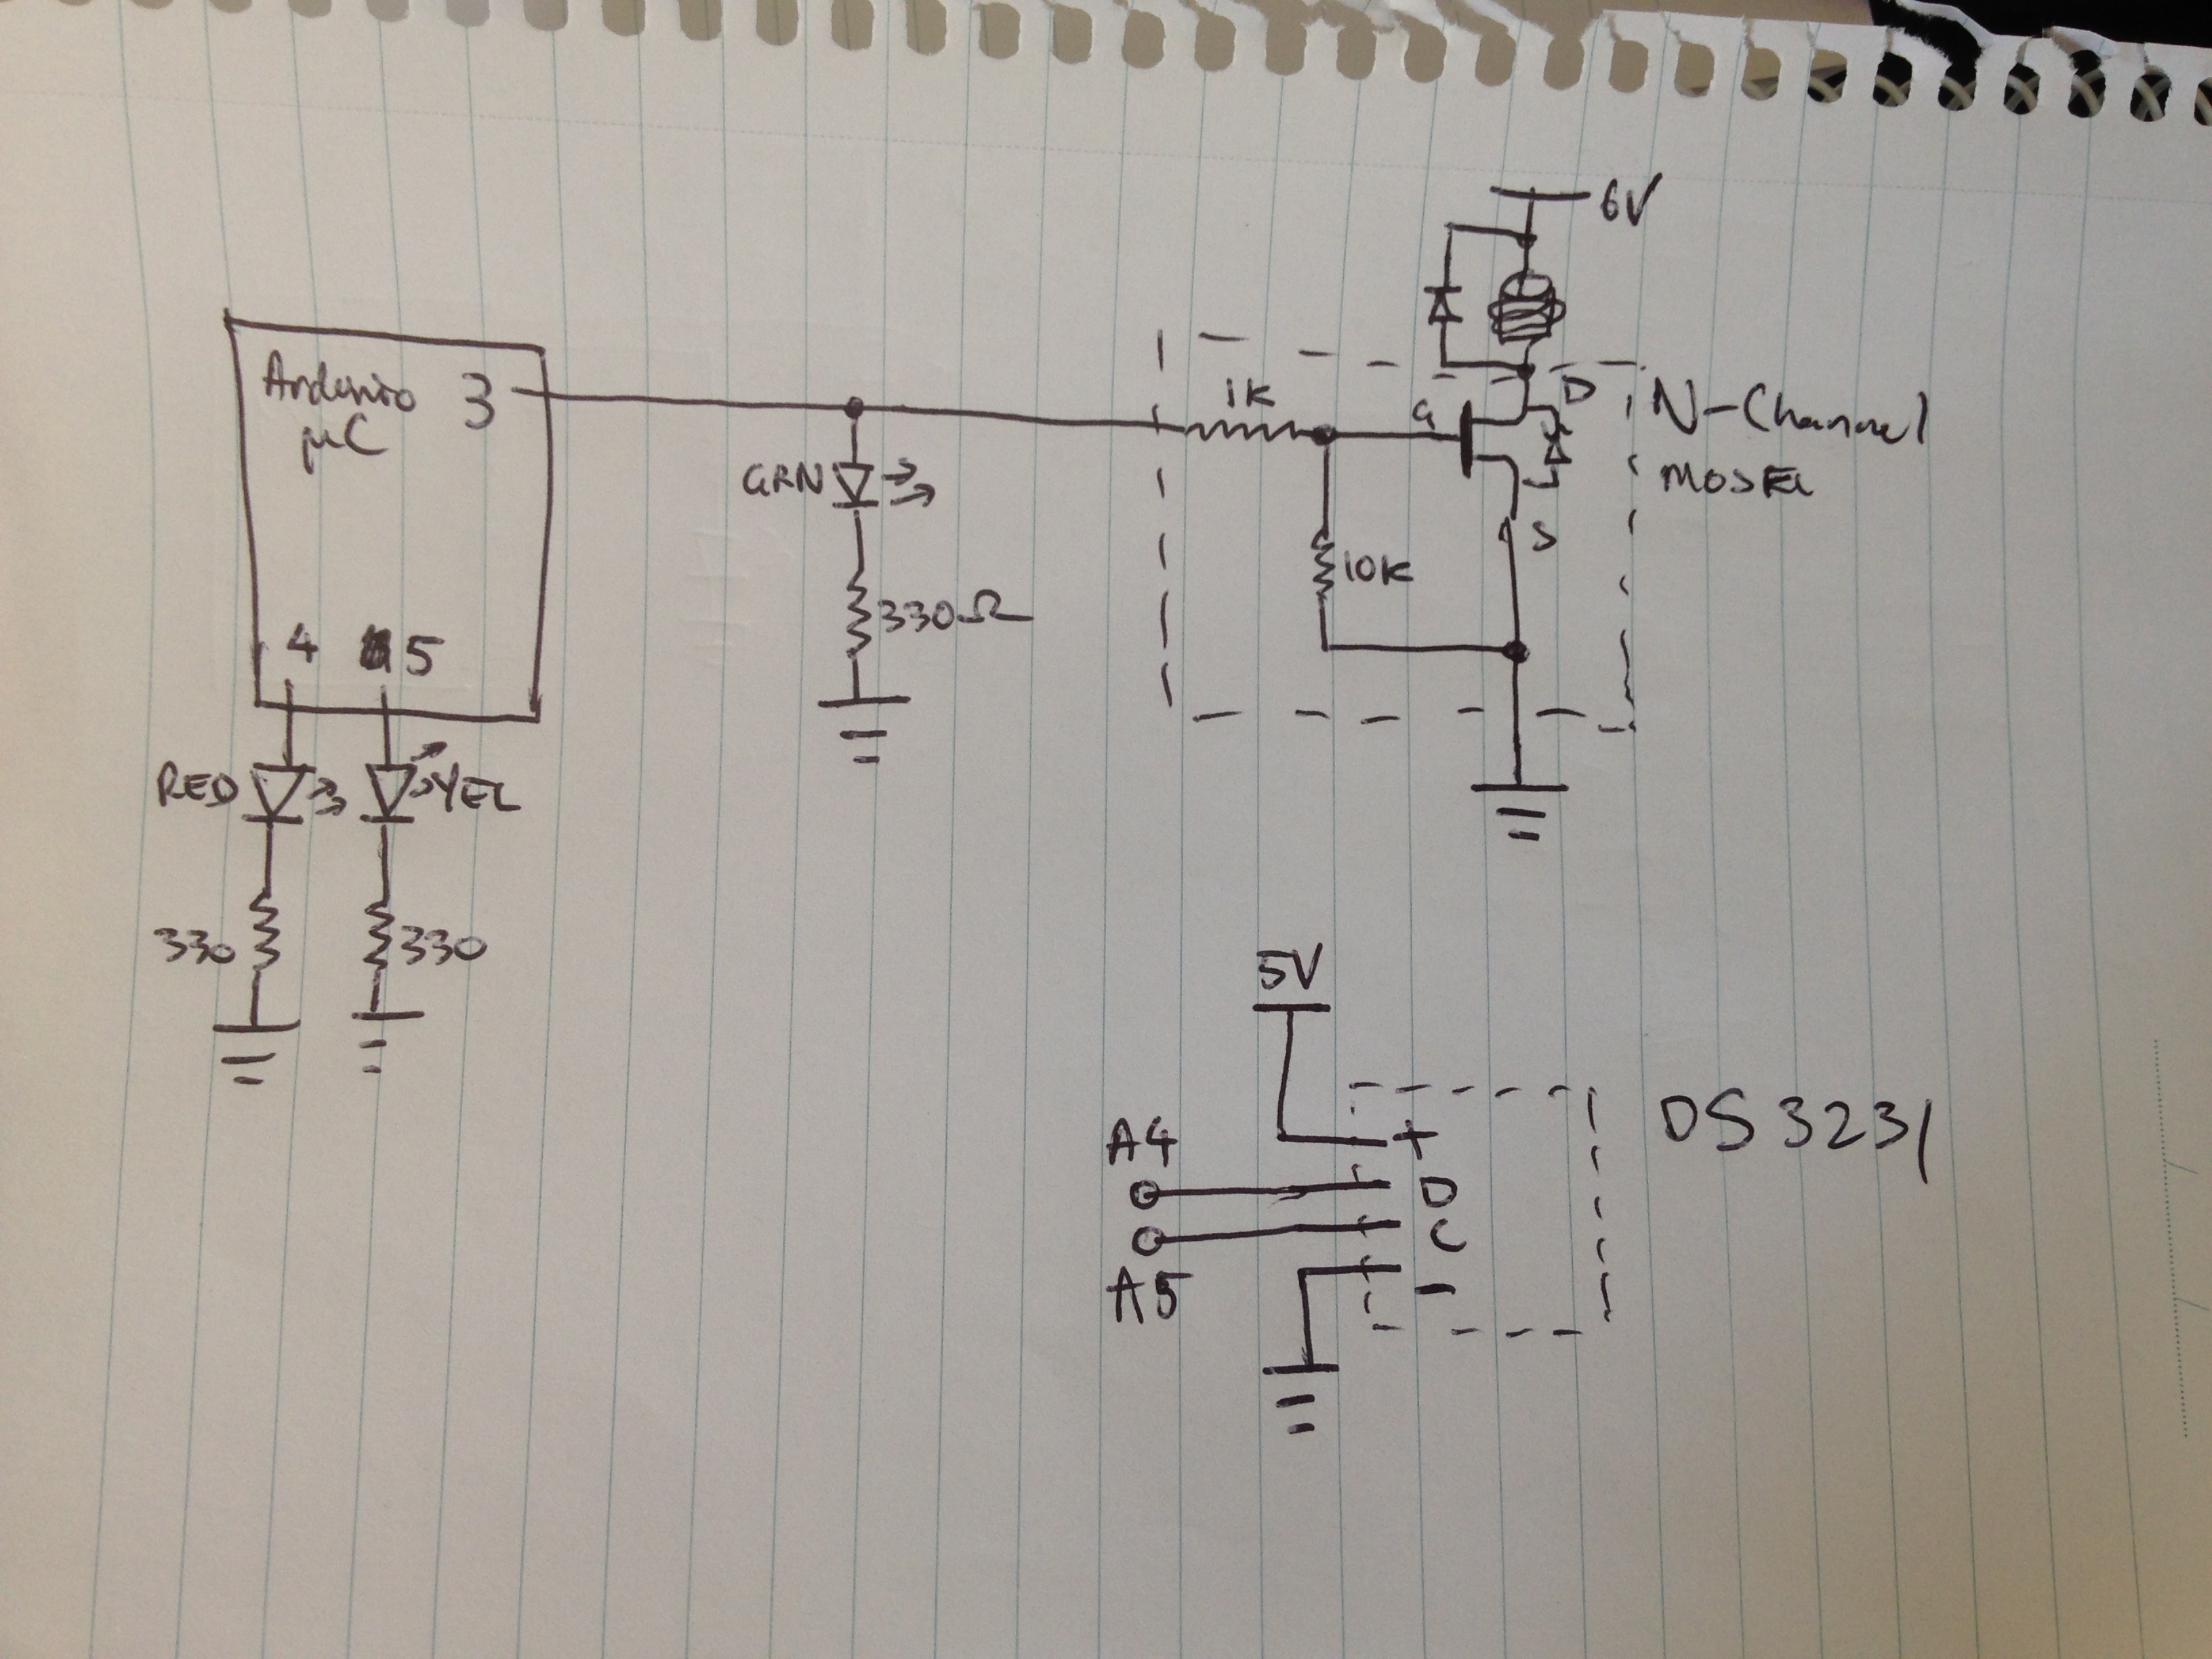 Arduino
µC
3
4
5
RED
YEL
330
330
GRN
330Ω
1K
10K
G
D
S
6V
N-Channel
5V
A4
A5
+
D
C
-
DS3231